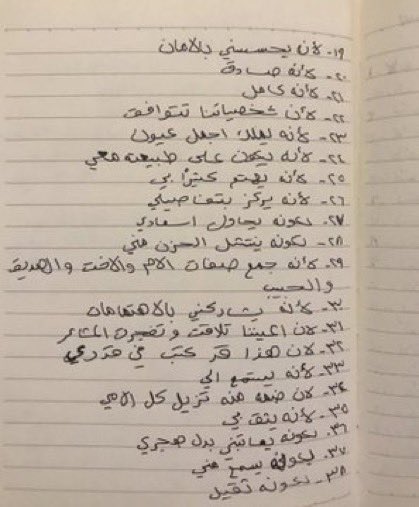 ١٩- لأن يحسسني بالامان
٢٠- لأنه صادق
٢١- لأنه كامل
٢٢- لأن شخصياتنا تتوافق
٢٣- لأنه يملك اجمل عيون
٢٤- لأنه يكون على طبيعته معي
٢٥- لأنه يهتم كثيرًا بي
٢٦- لأنه يركز بتفاصيلي
٢٧- لكونه يحاول اسعادي
٢٨- لكونه ينتشل الحزن مني
٢٩- لأنه جمع صفات الام والاخت والصديق
والحبيب
٣٠- لأنه يشاركني بالاهتمامات
٣١- لان اعيننا تلاقت و تفجرت المشاعر
٣٢- لان هذا قد كتب في قدري
٣٣- لأنه يستمع الي
٣٤- لان ضمه منه تزيل كل الامي
٣٥- لأنه يثق بي
٣٦- لكونه يعاتبني بدل هجري
٣٧- لكونه يسمع مني
٣٨- لكونه ثقيل